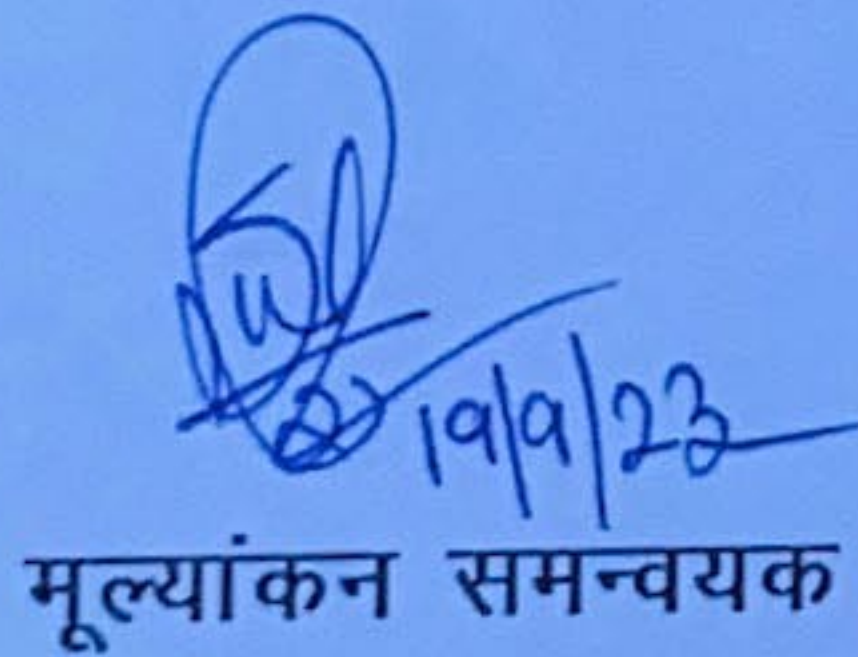 19/9/23
मूल्यांकन समन्वयक